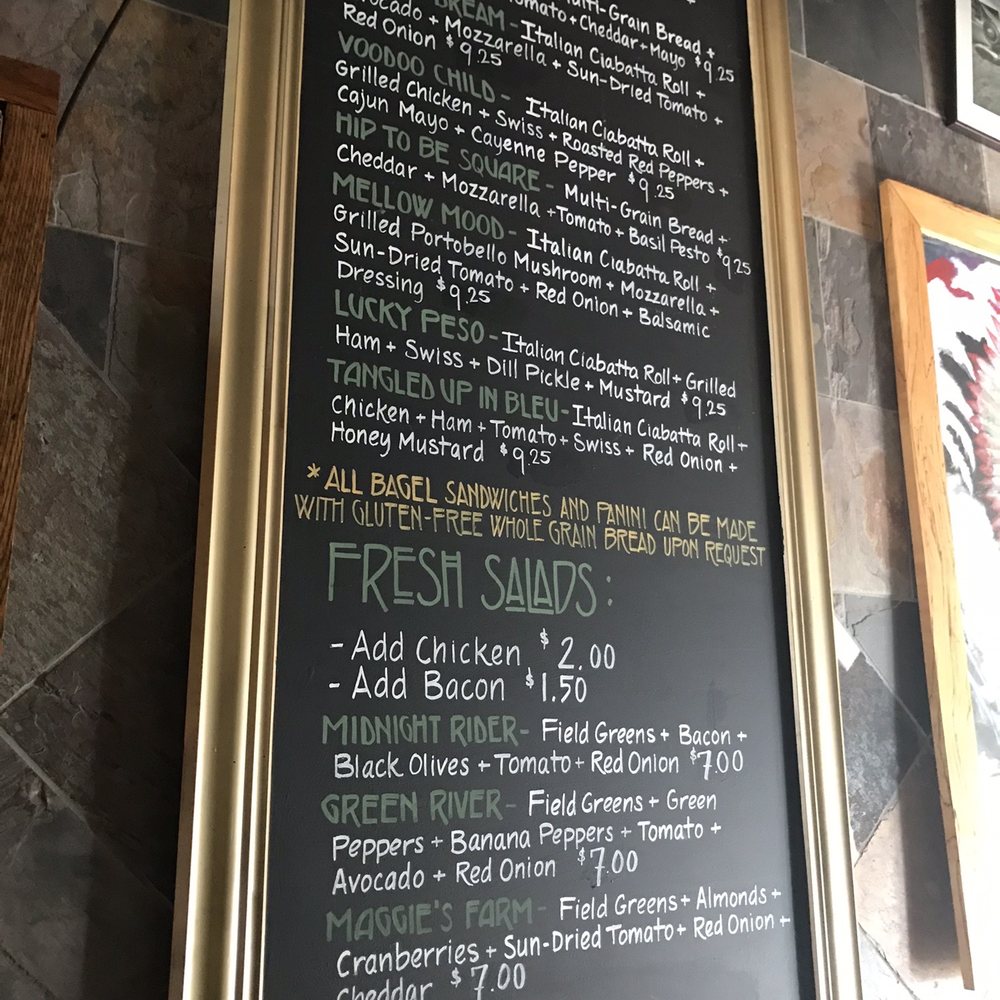 Multi-Grain Bread +
Tomato + Cheddar + Mayo $9.25
DREAM - Italian Ciabatta Roll +
Avocado + Mozzarella + Sun-Dried Tomato +
Red Onion $9.25
VOODOO CHILD - Italian Ciabatta Roll +
Grilled Chicken + Swiss + Roasted Red Peppers +
Cajun Mayo + Cayenne Pepper $9.25
HIP TO BE SQUARE - Multi-Grain Bread +
Cheddar + Mozzarella + Tomato + Basil Pesto $9.25
MELLOW MOOD - Italian Ciabatta Roll +
Grilled Portobello Mushroom + Mozzarella +
Sun-Dried Tomato + Red Onion + Balsamic
Dressing $9.25
LUCKY PESO - Italian Ciabatta Roll + Grilled
Ham + Swiss + Dill Pickle + Mustard $9.25
TANGLED UP IN BLEU - Italian Ciabatta Roll +
Chicken + Ham + Tomato + Swiss + Red Onion +
Honey Mustard $9.25
* ALL BAGEL SANDWICHES AND PANINI CAN BE MADE
WITH GLUTEN-FREE WHOLE GRAIN BREAD UPON REQUEST
FRESH SALADS:
- Add Chicken $2.00
- Add Bacon $1.50
MIDNIGHT RIDER - Field Greens + Bacon +
Black Olives + Tomato + Red Onion $7.00
GREEN RIVER - Field Greens + Green
Peppers + Banana Peppers + Tomato +
Avocado + Red Onion $7.00
MAGGIE'S FARM - Field Greens + Almonds +
Cranberries + Sun-Dried Tomato + Red Onion +
Cheddar $7.00